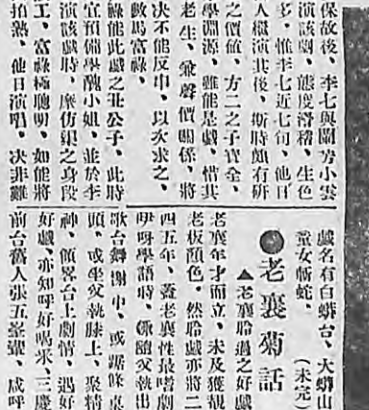 保故後、李七與蘭芳小雲
演該劇、態度滑稽、生色
多、惟李七近七旬、他日
人繼演其後、斯時頗有研
之價値、方二之子寶全、
學淵源、雖能是戲、惜其
老生、兼聲價關係、將
決不能反串、以次求之、
數馬富祿、
祿能此戲之丑公子、此時
宜預備學醜小姐、並於李
演該戲時、摩仿渠之身段
工、富祿極聰明、如能將
拍熟、他日演唱、決非難
戲名有白蟒台、大蟒山
童女斬蛇、
(未完)
●老襄菊話
▲老襄聆過之好戲
老襄年才而立、未及獲覩
老板顏色、然聆戲亦將二
四五年、蓋老襄性最嗜劇
咿呀學語時、係隨父執出
歌台舞榭中、或踞條桌
頭、或坐父執膝上、聚精
神、傾睪台上劇情、遇好
好戲、亦知呼好喝求、三慶
前台舊人張五峯輩、咸呼